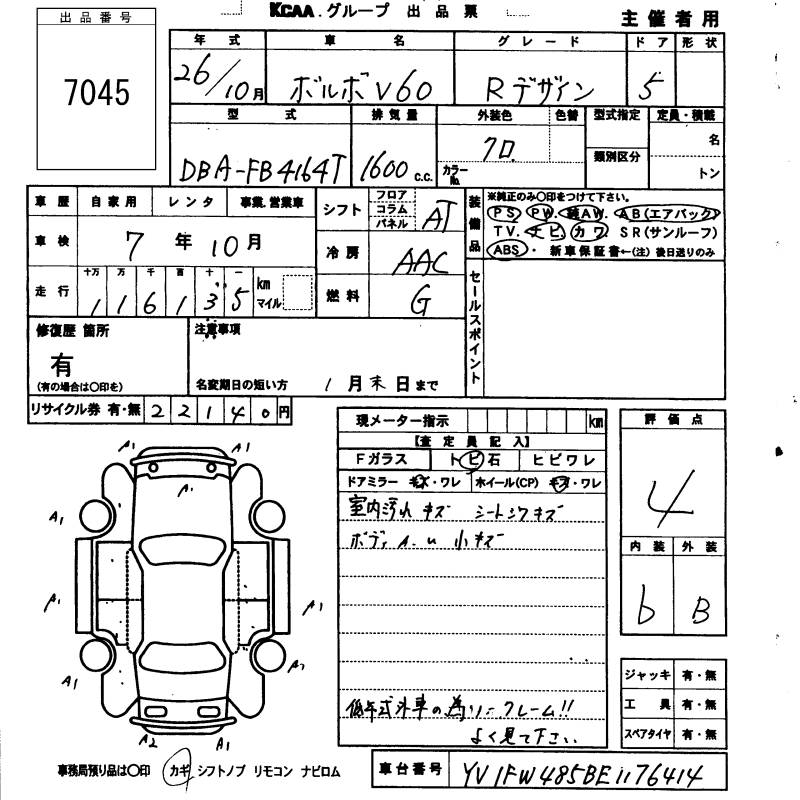 出品番号
7045
KCAA.グループ 出品票
主催者用
年式 車名 グレード ドア 形状
26/10月 ボルボV60 Rデザイン 5
型式 排気量 外装色 色替 型式指定 定員・積載
DBA-FB4164T 1600 c.c. カラーNo. クロ 類別区分 名
トン
車歴 自家用 レンタ 事業.営業車
車検 7年10月
走行 十万 万 千 百 十 一 km マイル
1 1 6 1 3 5
シフト フロア コラム パネル AT
冷房 AAC
燃料 G
装備品 ※純正のみ〇印をつけて下さい。
PS PW 革AW. AB(エアバック)
TV. ナビ カワ SR(サンルーフ)
ABS・ 新車保証書←(注) 後日送りのみ
セールスポイント
修復歴 箇所
有
(有の場合は〇印を)
注意事項
名変期日の短い方 1月末日まで
リサイクル券 有・無 22140円
現メーター指示 km
【査定員記入】
Fガラス トビ石 ヒビワレ
ドアミラー キズ・ワレ ホイール(CP) キズ・ワレ
室内汚れ キズ シートシワキズ
ボディA.u 小キズ
低年式外車の為ノークレーム!!
よく見て下さい.
評価点
4
内装 外装
b B
ジャッキ 有・無
工具 有・無
スペアタイヤ 有・無
A1 A1
A1
A1 A1
A1 A1
A1 A1
A2 A1
事務局預り品は〇印 カギ シフトノブ リモコン ナビロム
車台番号 YV1FW485BE1176414